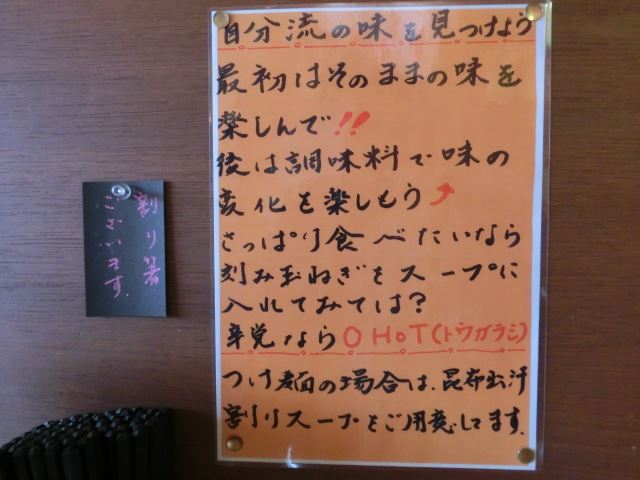 自分流の味を見つけよう
最初はそのままの味を
楽しんで!!
後は調味料で味の
変化を楽しもう
さっぱり食べたいなら
刻み玉ねぎをスープに
入れてみては?
辛党なら O HOT(トウガラシ)
つけ麺の場合は、昆布出汁
割りスープをご用意してます。
割り箸
ございます。